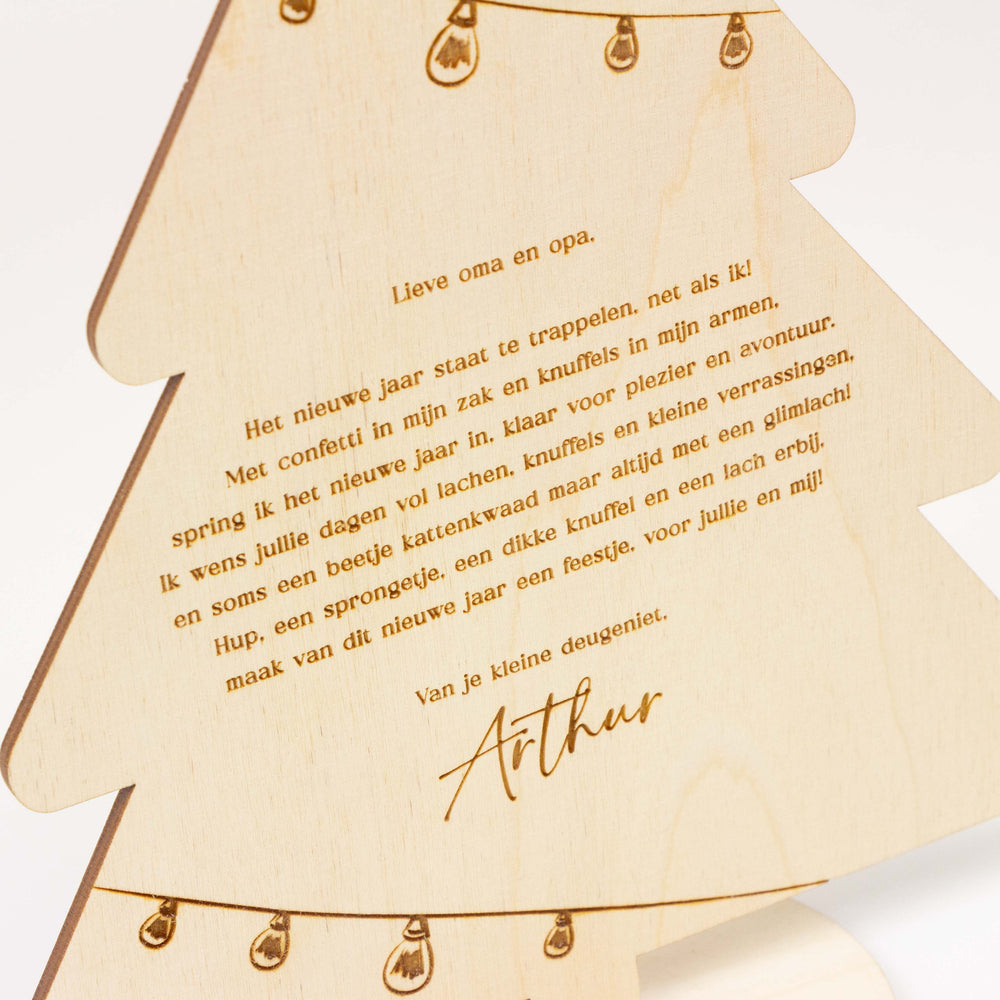 Lieve oma en opa,
Het nieuwe jaar staat te trappelen, net als ik!
Met confetti in mijn zak en knuffels in mijn armen,
spring ik het nieuwe jaar in, klaar voor plezier en avontuur.
Ik wens jullie dagen vol lachen, knuffels en kleine verrassingen,
en soms een beetje kattenkwaad maar altijd met een glimlach!
Hup, een sprongetje, een dikke knuffel en een lach erbij,
maak van dit nieuwe jaar een feestje, voor jullie en mij!
Van je kleine deugeniet,
Arthur